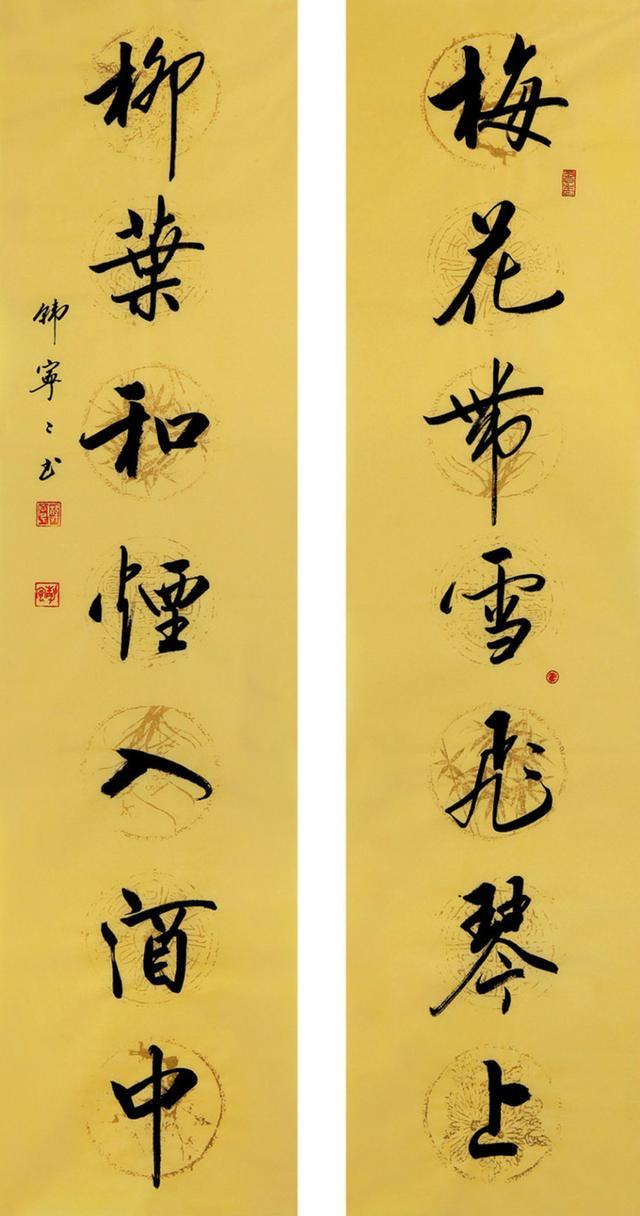 梅花帶雪飛琴上
柳葉和煙入酒中
韩寧寧书